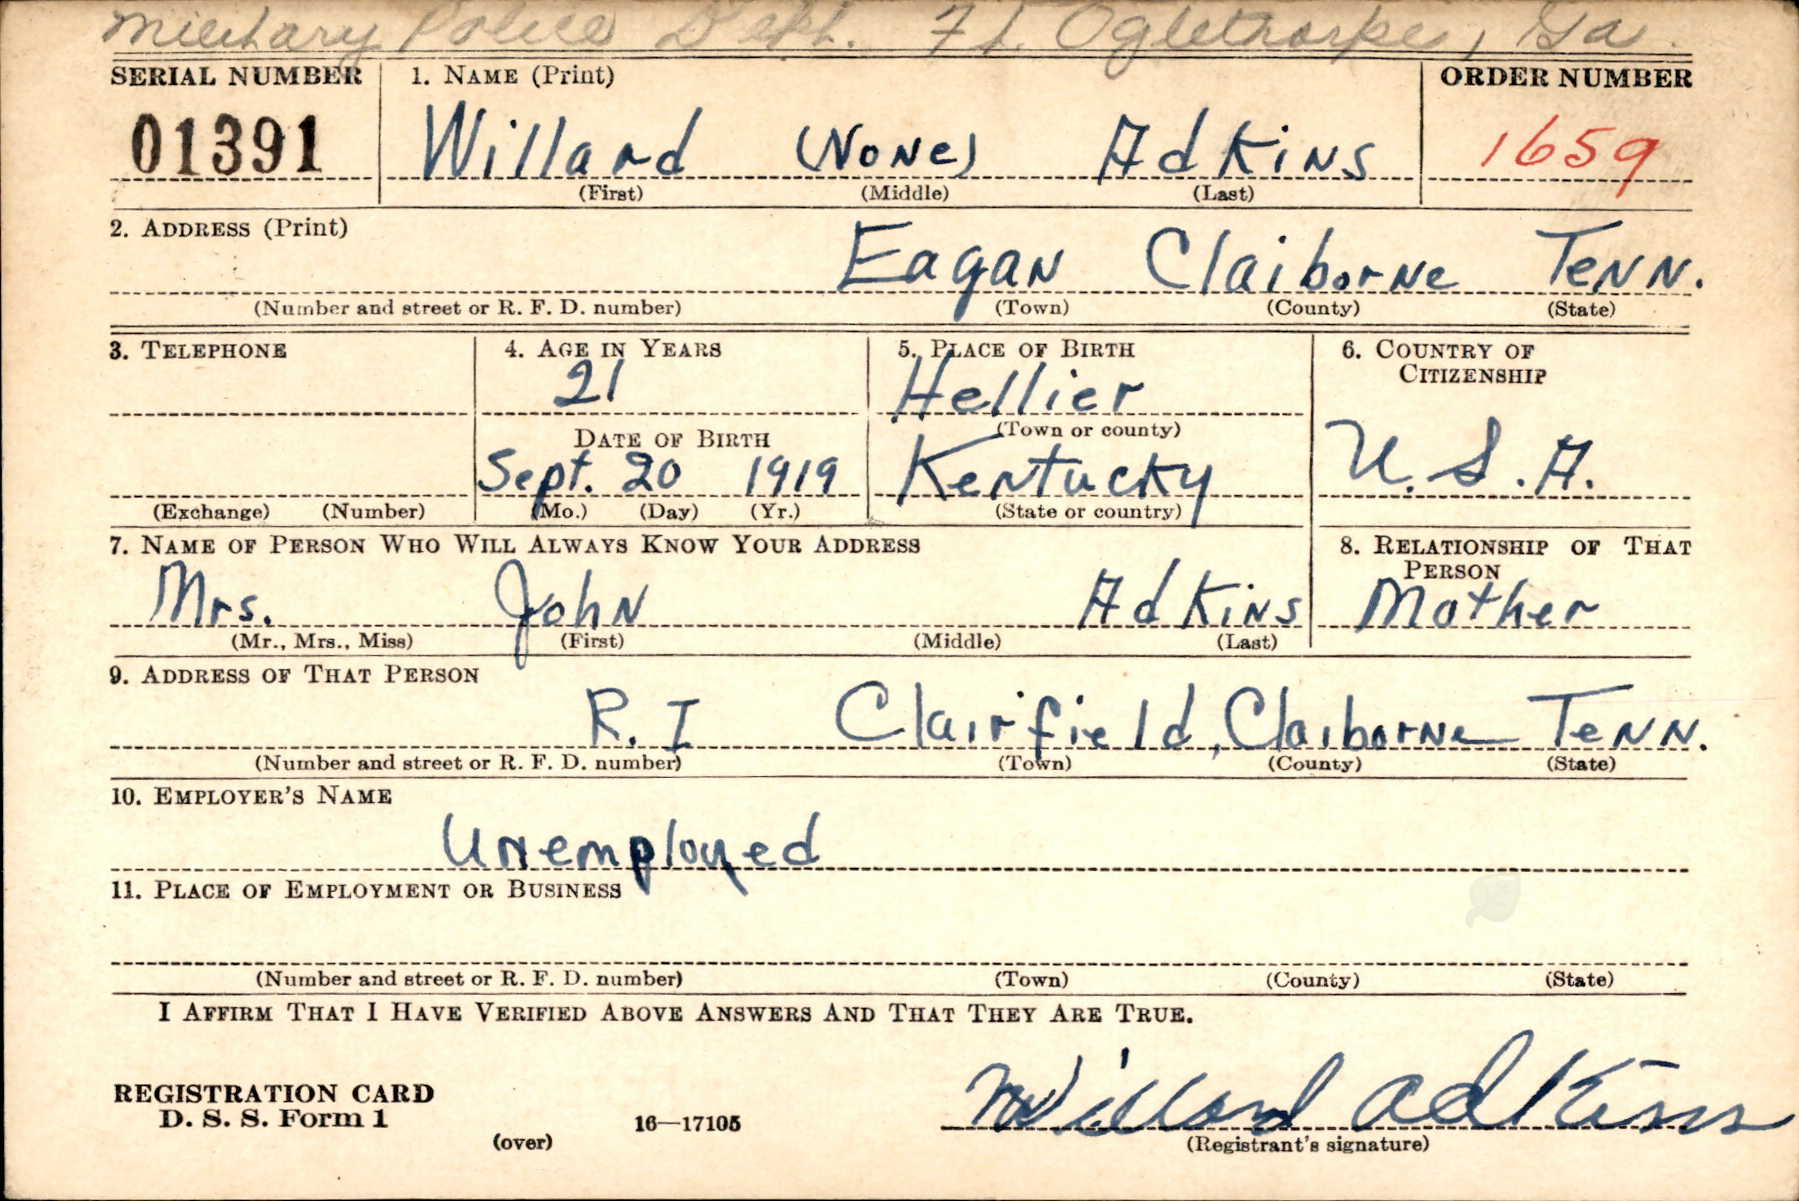 Military Police Dept. Ft. Oglethorpe, Ga.
SERIAL NUMBER 1. NAME (Print) ORDER NUMBER
01391 Willard (None) Adkins 1659
(First) (Middle) (Last)
2. ADDRESS (Print)
Eagan Claiborne Tenn.
(Number and street or R. F. D. number) (Town) (County) (State)
3. TELEPHONE 4. AGE IN YEARS 5. PLACE OF BIRTH 6. COUNTRY OF
CITIZENSHIP
21 Hellier
(Town or county)
DATE OF BIRTH
Sept. 20 1919 Kentucky U.S.A.
(Exchange) (Number) (Mo.) (Day) (Yr.) (State or country)
7. NAME OF PERSON WHO WILL ALWAYS KNOW YOUR ADDRESS 8. RELATIONSHIP OF THAT
PERSON
Mrs. John Adkins Mother
(Mr., Mrs., Miss) (First) (Middle) (Last)
9. ADDRESS OF THAT PERSON
R. I Clairfield, Claiborne Tenn.
(Number and street or R. F. D. number) (Town) (County) (State)
10. EMPLOYER'S NAME
Unemployed
11. PLACE OF EMPLOYMENT OR BUSINESS
(Number and street or R. F. D. number) (Town) (County) (State)
I AFFIRM THAT I HAVE VERIFIED ABOVE ANSWERS AND THAT THEY ARE TRUE.
REGISTRATION CARD
D. S. S. Form 1 16—17105 Willard Adkins
(over) (Registrant's signature)